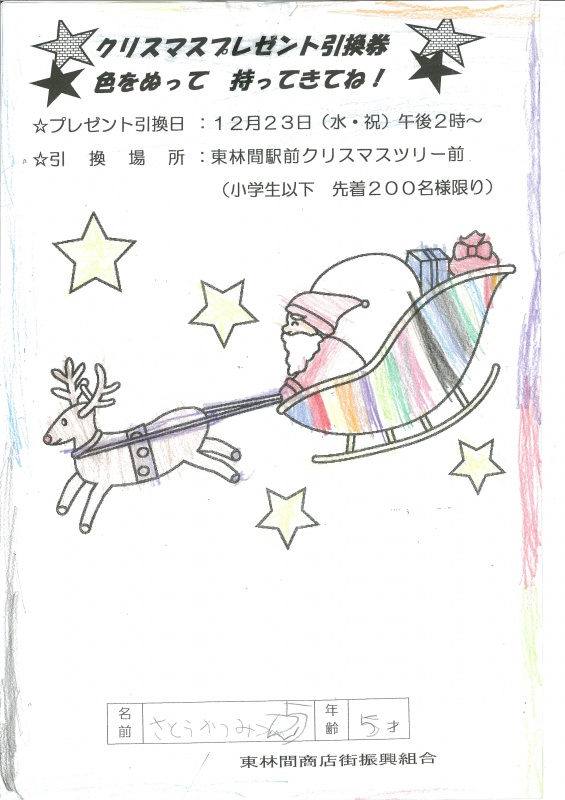 クリスマスプレゼント引換券
色をぬって 持ってきてね！
☆プレゼント引換日 ：１２月２３日（水・祝）午後２時～
☆引換場所 ：東林間駅前クリスマスツリー前
（小学生以下 先着２００名様限り）
名前 さとうかつみ 年齢 5才
東林間商店街振興組合